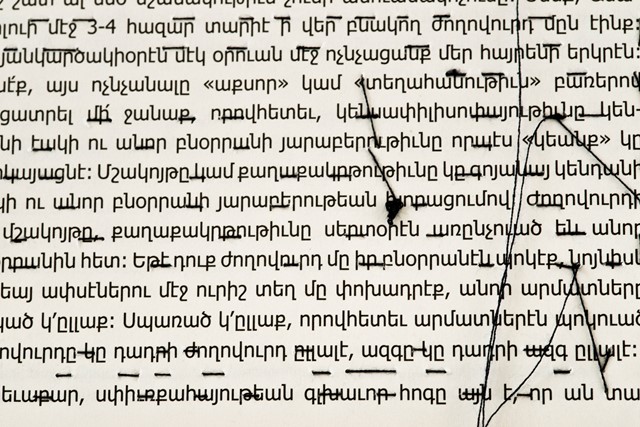 շատ ալ մեծ նշանակութիւն չունի
մեջ 3-4 հազար տարիէ ի վեր բնակող ժողովուրդ մըն էինք:
յանկարծակիօրէն մէկ օրուան մէջ ոչնչացանք մեր հայրենի երկրէն:
այս ոչնչանալը «աքսոր» կամ «տեղահանութիւն» բառերով
մի՛ ջանաք, որովհետեւ, կենսափիլիսոփայութիւնը կեն-
եակի ու անոր բնօրրանի յարաբերութիւնը որպէս «կեանք» կը
Մշակոյթը կամ քաղաքակրթութիւնը կը գոյանայ կենդանի
ու անոր բնօրրանի յարաբերութեան խորացումով ժողովուրդի
մշակոյթը, քաղաքակրթութիւնը սերտօրէն առընչուած են անոր
հետ: Եթէ դուք ժողովուրդ մը իր բնօրրանէն պոկէք, նոյնիսկ
ափսէներու մէջ ուրիշ տեղ մը փոխադրէք, անոր արմատները
կ՚ըլլաք: Սպառած կ՚ըլլաք, որովհետեւ արմատներէն պոկուած
ժողովուրդը կը դադրի ժողովուրդ ըլլալէ, ազգը կը դադրի ազգ ըլլալէ:
սփիւռքահայութեան գլխաւոր հոգը այն է, որ ան